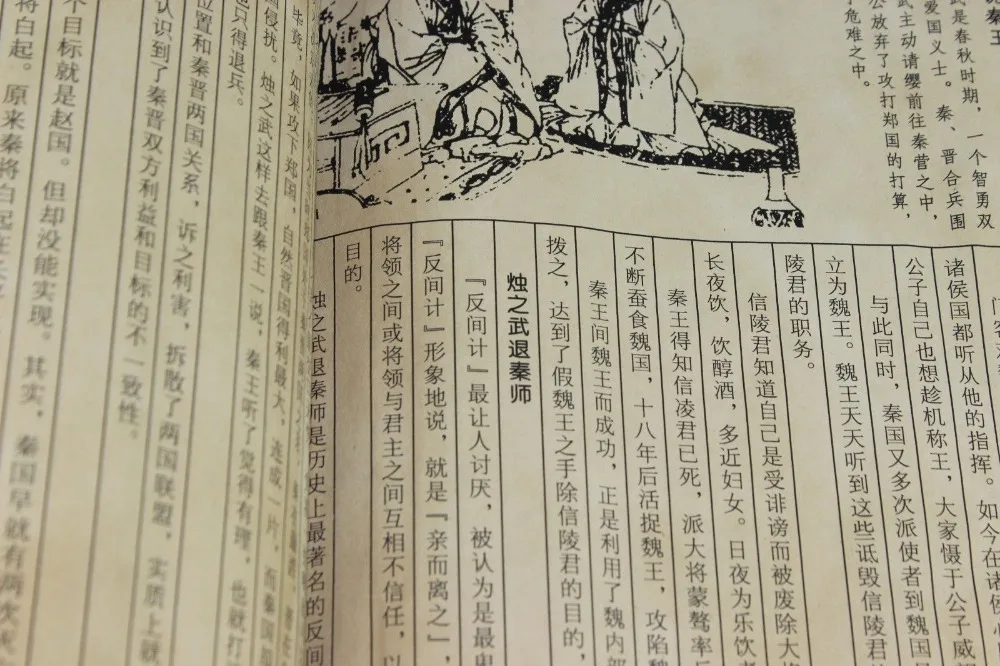 秦王
武是春秋时期，一个智勇双
爱国义士。秦、晋合兵围
武主动请缨前往秦营之中，
公放弃了攻打郑国的打算，
于危难之中。
诸侯国都听从他的指挥。如今在诸侯
公子自己也想趁机称王，大家慑于公子威
与此同时，秦国又多次派使者到魏国
立为魏王。魏王天天听到这些诋毁信陵君
陵君的职务。
信陵君知道自己是受诽谤而被废除大
长夜饮，饮醇酒，多近妇女。日夜为乐饮
秦王得知信凌君已死，派大将蒙骜率
不断蚕食魏国，十八年后活捉魏王，攻陷魏
秦王间魏王而成功，正是利用了魏内部
拨之，达到了假魏王之手除信陵君的目的，
烛之武退秦师
『反间计』最让人讨厌，被认为是最卑
『反间计』形象地说，就是『亲而离之』，
将领之间或将领与君主之间互相不信任，以
目的。
烛之武退秦师是历史上最著名的反间
毕竟，如果攻下郑国，自然晋国得利最大，连成一片，而秦国
侵扰。烛之武这样去跟秦王一说，秦王听了觉得有理，也就打
也只得退兵。
位置和秦晋两国关系，诉之利害，拆散了两国联盟，实质上就
认识到了秦晋双方利益和目标的不一致性。
个目标就是赵国。但却没能实现。其实，秦国早就有两次
将白起。原来秦将白起在